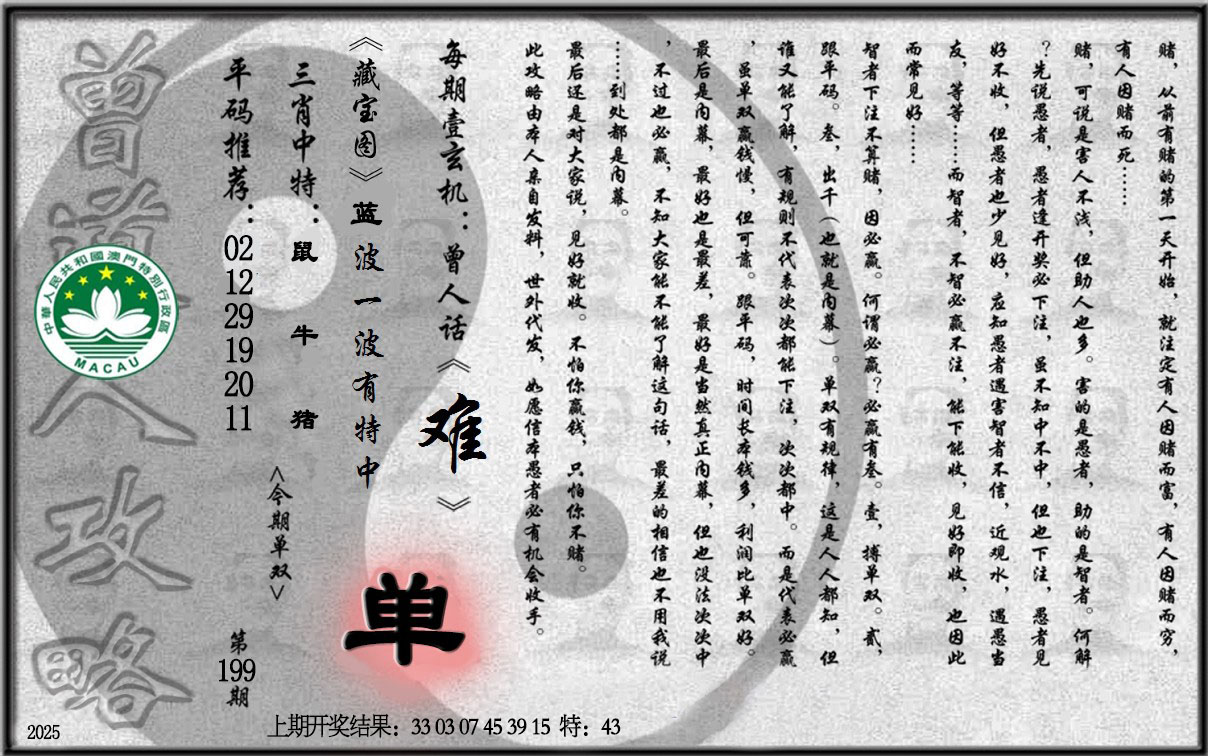 赌，从前有赌的第一天开始，就注定有人因赌而富，有人因赌而穷，
有人因赌而死……
赌，可说是害人不浅，但助人也多。害的是愚者，助的是智者。何解
？先说愚者，愚者逢开奖必下注，虽不知中不中，但也下注，愚者见
好不收，但愚者也少见好，应知愚者遇害智者不信，近观水，遇愚当
友，等等……而智者，不智必赢不注，能下能收，见好即收，也因此
而常见好……
智者下注不算赌，因必赢。何谓必赢？必赢有叁。壹，搏单双。贰，
跟平码。叁，出千（也就是内幕）。单双有规律，这是人人都知，但
谁又能了解，有规则不代表次次都能下注，次次都中。而是代表必赢
，虽单双赢钱慢，但可靠。跟平码，时间长本钱多，利润比单双好。
最后是内幕，最好也是最差，最好是当然真正内幕，但也没法次次中
，不过也必赢，不知大家能不能了解这句话，最差的相信也不用我说
……到处都是内幕。
最后还是对大家说，见好就收。不怕你赢钱，只怕你不赌。
此攻略由本人亲自发料，世外代发，如愿信本愚者必有机会收手。
每期壹玄机：曾人话《难》
《藏宝图》蓝波一波有特中
单
三肖中特：鼠牛猪
<今期单双>
平码推荐：02 12 29 19 20 11
第199期
曾道人攻略
中華人民共和國澳門特別行政區
MACAU
2025
上期开奖结果：33 03 07 45 39 15 特：43